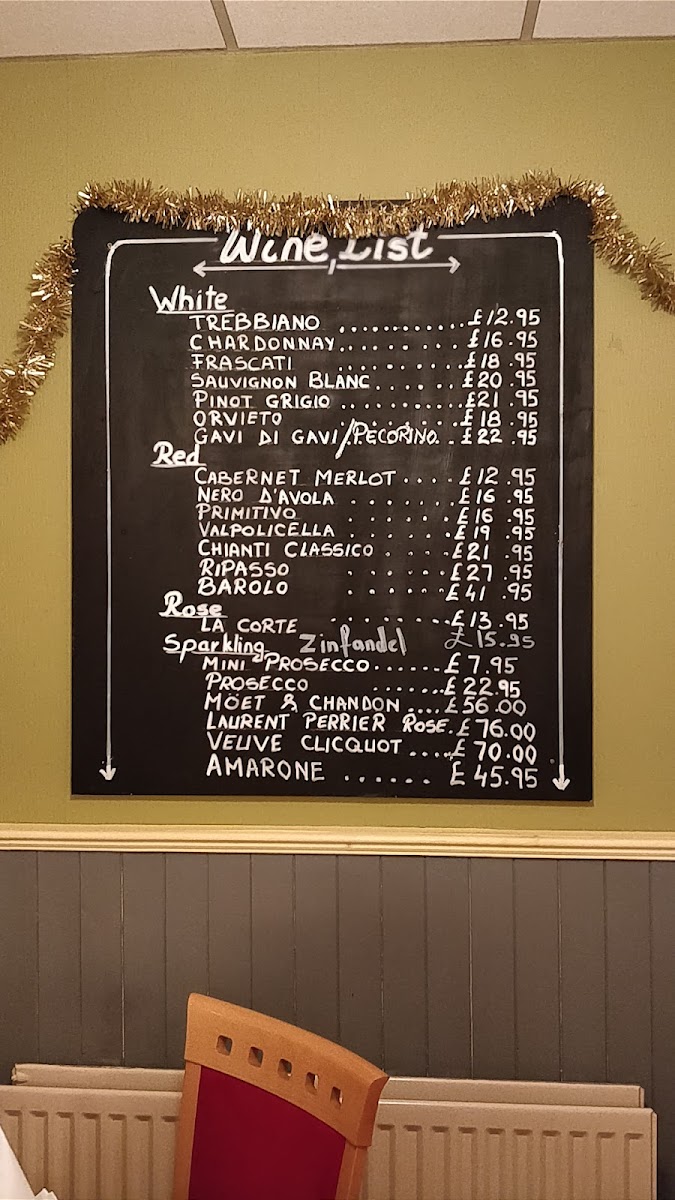 Wine List
White
TREBBIANO ............ £12.95
CHARDONNAY............ £16.95
FRASCATI ......... £18.95
SAUVIGNON BLANC...... £20.95
PINOT GRIGIO ......... £21.95
ORVIETO ......... £18.95
GAVI DI GAVI/PECORINO .. £22.95
Red
CABERNET MERLOT.... £12.95
NERO D'AVOLA ...... £16.95
PRIMITIVO ...... £16.95
VALPOLICELLA ...... £19.95
CHIANTI CLASSICO .... £21.95
RIPASSO ...... £27.95
BAROLO ...... £41.95
Rose
LA CORTE ......... £13.95
Sparkling Zinfandel £15.95
MINI PROSECCO...... £7.95
PROSECCO ....... £22.95
MÖET & CHANDON .... £56.00
LAURENT PERRIER ROSE. £76.00
VEUVE CLICQUOT ..... £70.00
AMARONE ...... £45.95